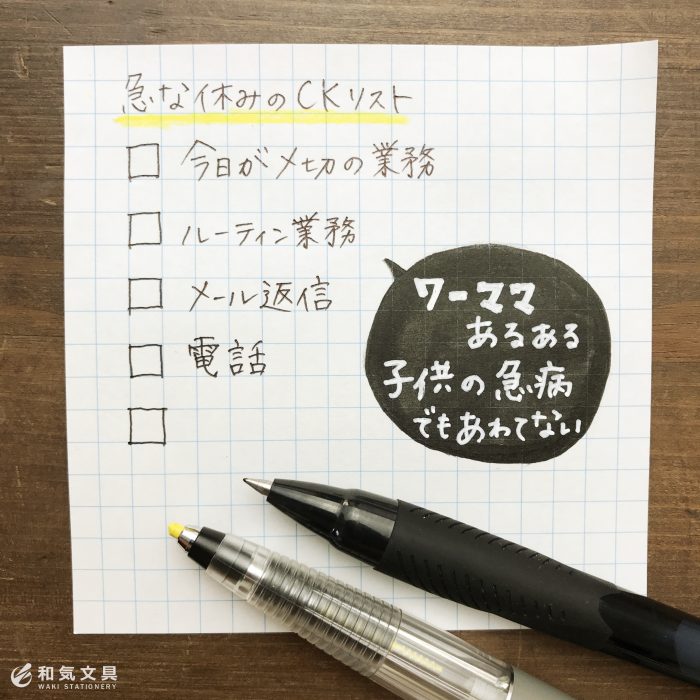 急な休みのCKリスト
今日が〆切の業務
ルーティン業務
メール返信
電話
ワーママ
あるある
子供の急病
でもあわてない
和気文具
WAKI STATIONERY